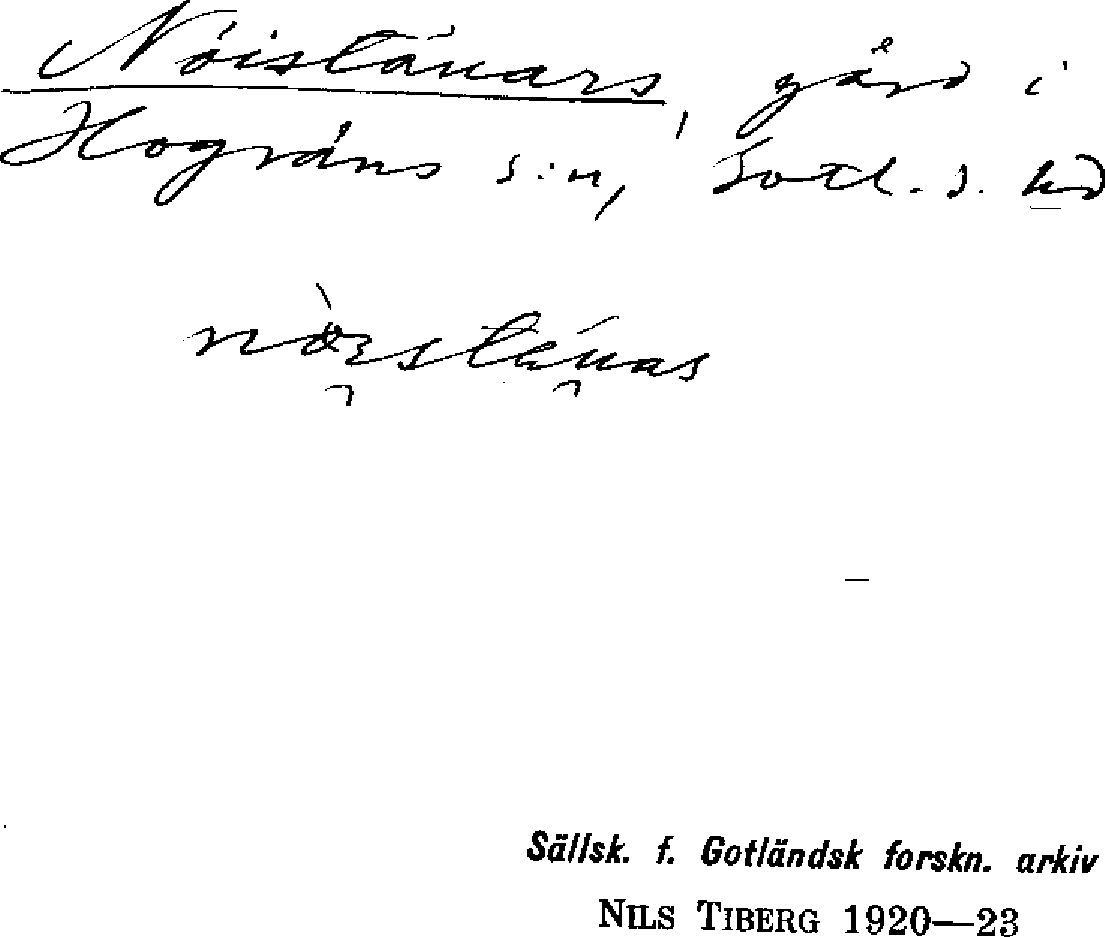 Nöistänars, gård i
Hogräns s:n, Gotl. s. hd
Sällsk. f. Gotländsk forskn. arkiv
NILS TIBERG 1920—23